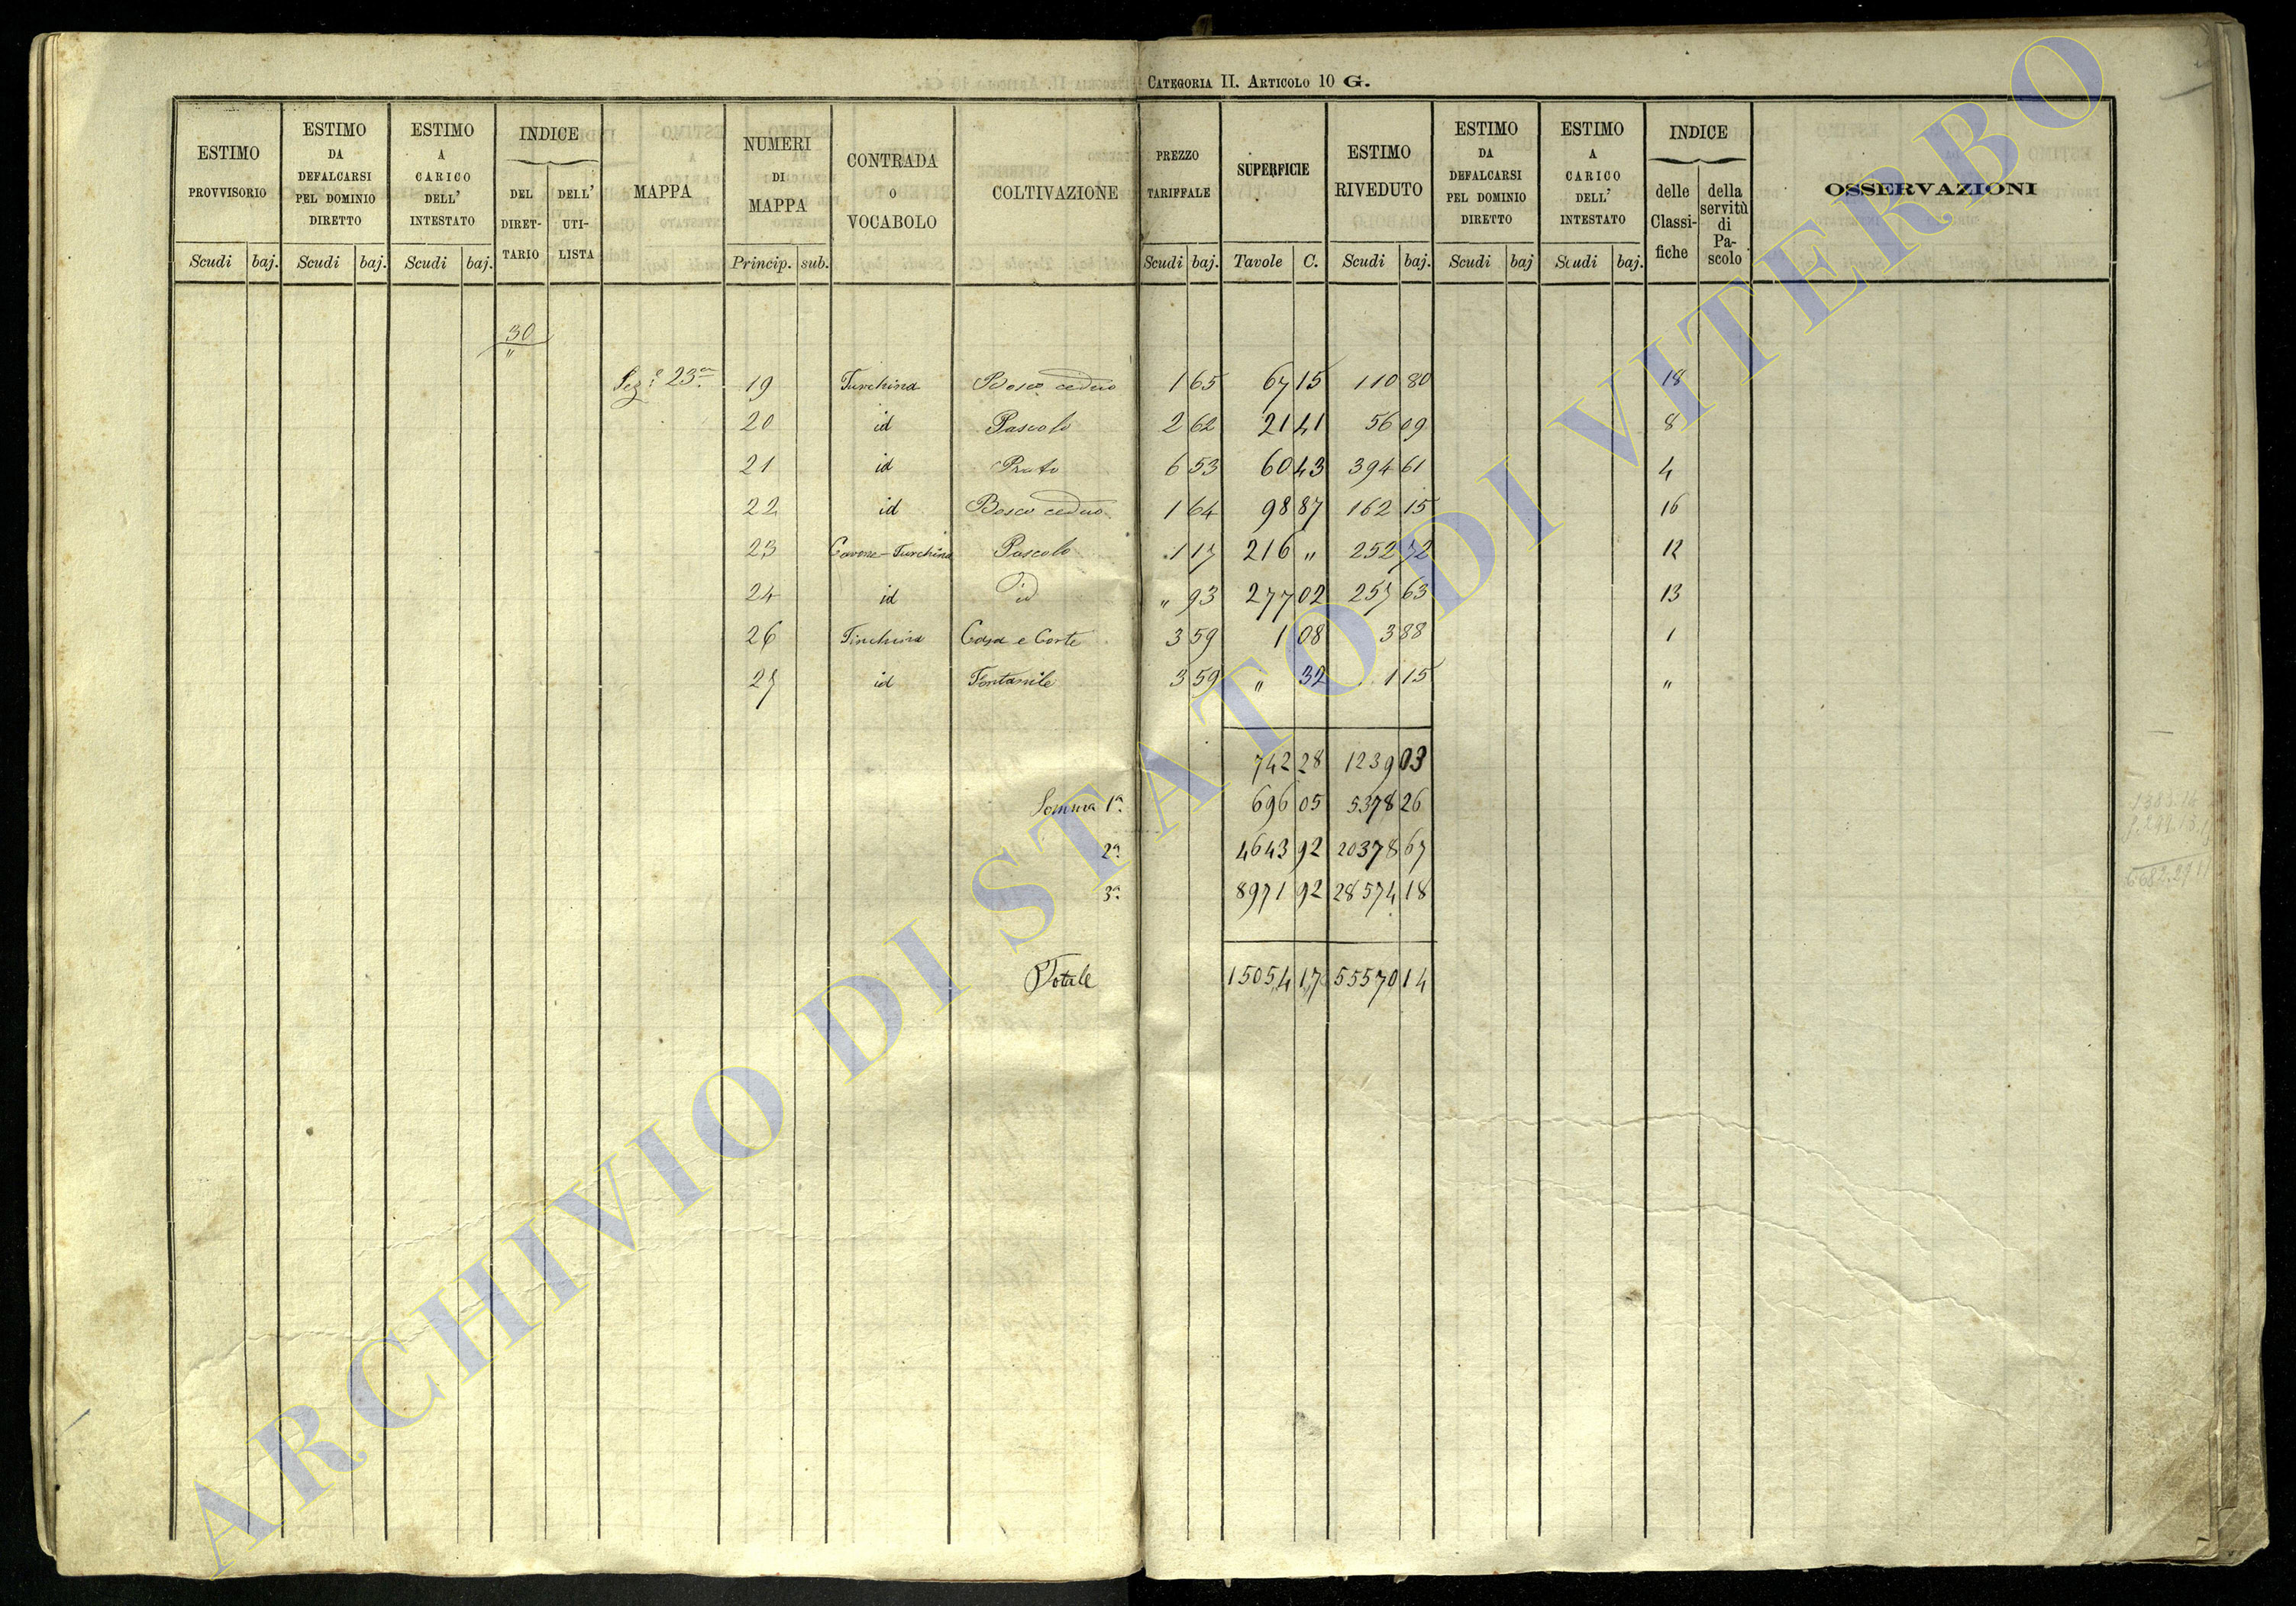 CATEGORIA II. ARTICOLO 10 G.
ESTIMO PROVVISORIO | ESTIMO DA DEFALCARSI PEL DOMINIO DIRETTO | ESTIMO A CARICO DELL' INTESTATO | INDICE | MAPPA | NUMERI DI MAPPA | CONTRADA O VOCABOLO | COLTIVAZIONE | PREZZO TARIFFALE | SUPERFICIE | ESTIMO RIVEDUTO | ESTIMO DA DEFALCARSI PEL DOMINIO DIRETTO | ESTIMO A CARICO DELL' INTESTATO | INDICE | OSSERVAZIONI
DEL DIRETTARIO | DELL' UTILISTA | delle Classifiche | della servitù di Pascolo
Scudi baj. | Scudi baj. | Scudi baj. | Princip. sub. | Scudi baj. | Tavole C. | Scudi baj. | Scudi baj | Scudi baj.
30
"
Sez.e 23a 19 Turchina Bosco ceduo 1 65 67 15 110 80 18
20 id Pascolo 2 62 21 41 56 09 8
21 id Prato 6 53 60 43 394 61 4
22 id Bosco ceduo 1 64 98 87 162 15 16
23 Cavone-Turchina Pascolo 1 17 216 " 252 72 12
24 id id " 93 277 02 257 63 13
26 Turchina Casa e Corte 3 59 1 08 3 88 1
27 id Fontanile 3 59 " 32 1 15 "
742 28 1239 03
Somma 1a. 696 05 5378 26
2a. 4643 92 20378 67
3a. 8971 92 28574 18
Totale 15054 17 55570 14
ARCHIVIO DI STATO DI VITERBO